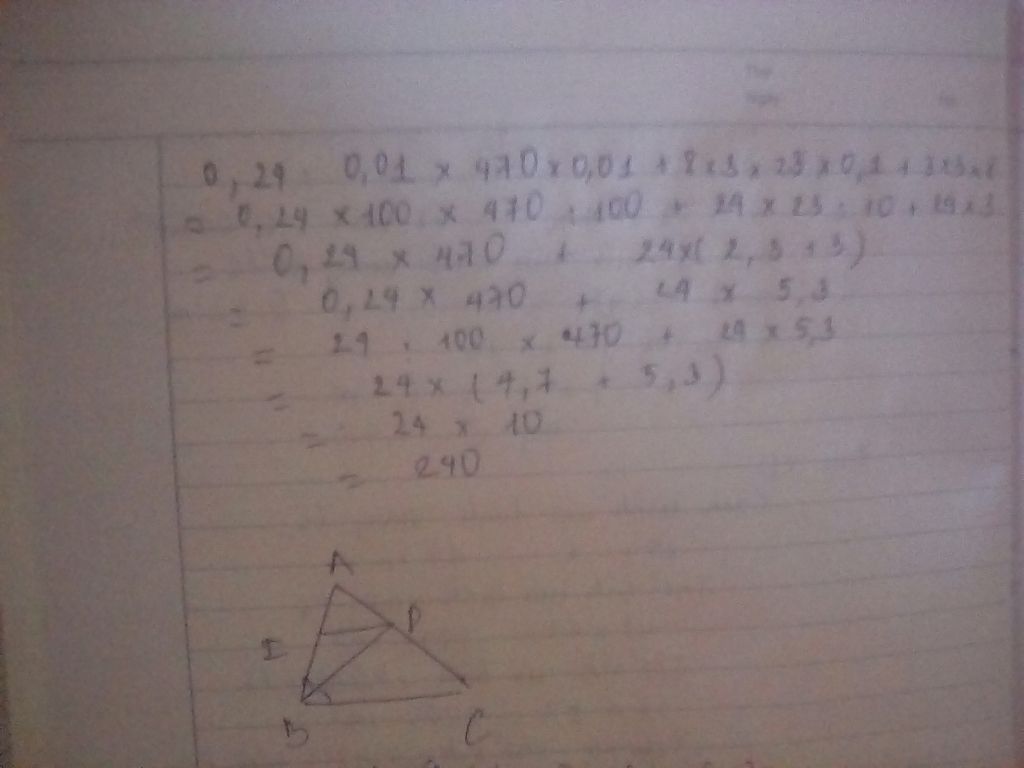 0,24 : 0,01 x 470 x 0,01 + 8 x 3 x 23 x 0,1 + 3 x 3 x 8
= 0,24 x 100 x 470 : 100 + 24 x 23 : 10 + 24 x 3
= 0,24 x 470 + 24 x ( 2,3 + 3 )
= 0,24 x 470 + 24 x 5,3
= 24 : 100 x 470 + 24 x 5,3
= 24 x ( 4,7 + 5,3 )
= 24 x 10
= 240
A
D
I
B C